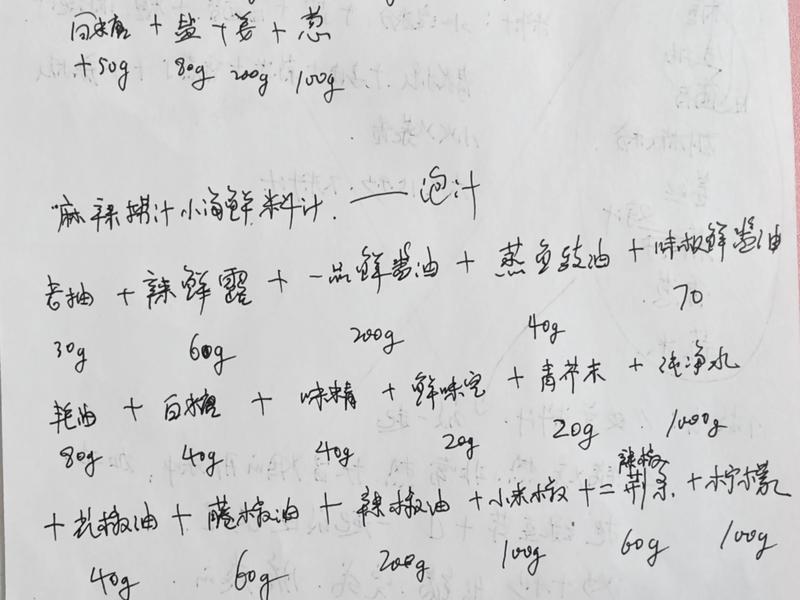 白糖 + 盐 + 姜 + 葱
+50g 80g 200g 100g
麻辣捞汁小海鲜料汁. —— 泡汁
老抽 + 辣鲜露 + 一品鲜酱油 + 蒸鱼豉油 + 味极鲜酱油
30g 60g 200g 40g 70
耗油 + 白糖 + 味精 + 鲜味宝 + 青芥末 + 纯净水
80g 40g 40g 20g 20g 1000g
辣椒
+ 花椒油 + 藤椒油 + 辣椒油 + 小米椒 + 二荆条 + 柠檬
40g 60g 200g 100g 60g 100g